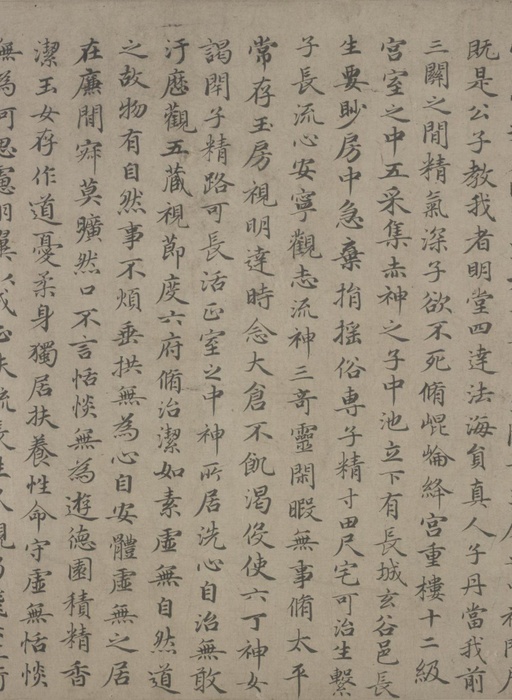 既是公子教我者明堂四達法海負真人子丹當我前
三關之閒精氣深子欲不死脩崐崘絳宮重樓十二級
宮室之中五采集赤神之子中池立下有長城玄谷邑長
生要眇房中急棄捐搖俗専子精寸田尺宅可治生繫
子長流心安寧觀志流神三奇靈閑暇無事脩太平
常存玉房視明達時念大倉不飢渴伇使六丁神女
謁閇子精路可長活正室之中神所居洗心自治無敢
汙歷觀五藏視節度六府脩治潔如素虛無自然道
之故物有自然事不煩垂拱無為心自安體虛無之居
在廉閒寂莫曠然口不言恬惔無為遊德園積精香
潔玉女存作道憂柔身獨居扶養性命守虛無恬惔
無為何思慮羽翼以成正扶疏長生久視乃飛去